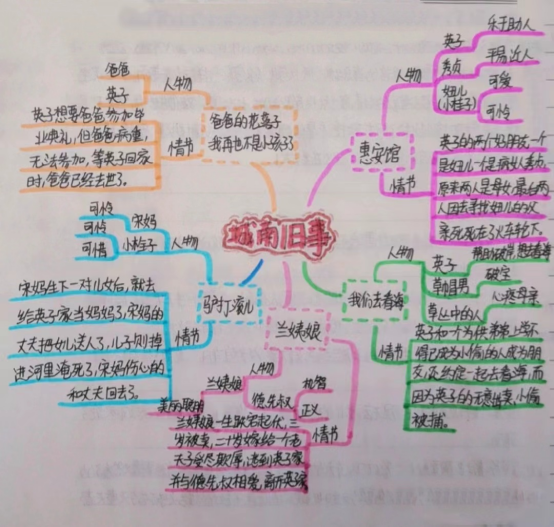 城南旧事
惠安馆
人物
英子
乐于助人
秀贞
平易近人
妞儿
(小桂子)
可爱
可怜
情节
英子的两个好朋友一个
是妞儿一个是疯女人秀贞
原来两人是母女,最后两
人因去寻找妞儿的父
亲死在了火车轮下。
我们去看海
人物
英子
草帽男
破案
草丛中的人
心疼母亲
情节
英子和一个为供弟弟上学
假已成为小偷的人成为朋
友,还约定一起去看海,而
因为英子的
小偷
被捕。
兰姨娘
人物
兰姨娘
美丽聪明
德先叔
执智
正义
情节
兰姨娘一生
三
岁被卖,二十岁嫁给一个老
头子受尽欺辱,逃到英子家
并与德先叔相爱,离开英家
驴打滚儿
人物
宋妈
可怜
小栓子
可怜
可惜
情节
宋妈生下一对儿女后,就去
给英子家当妈妈了,宋妈的
丈夫把女儿送人,儿子则掉
进河里淹死了,宋妈伤心的
和丈夫回去了。
爸爸的花落了
我再也不是小孩子
人物
爸爸
英子
情节
英子想要爸爸参加毕
业典礼,但爸爸病重,
无法参加,等英子回家
时,爸爸已经去世了。